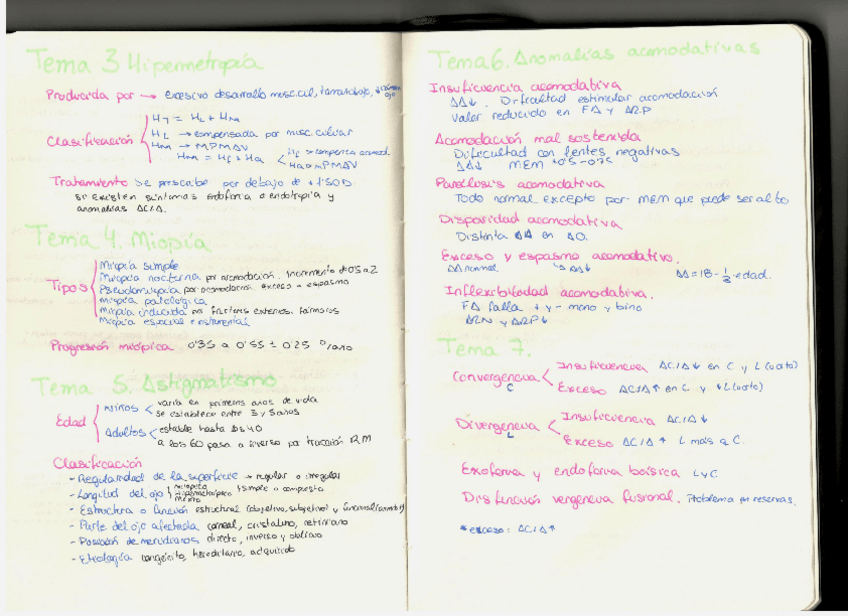 Tema 3 Hipermetropía
Producida por → excesivo desarrollo muscul,
Clasificación
HT = HL + HM
HL → compensada por musc. ciliar
HM → MPMAV
HM = HF + HA
HA → MPMAV
Tratamiento Se prescribe por debajo de +1'50D
si existen síntomas endoforia o endotropia y
anomalías AC/A.
Tema 4. Miopía
Tipos
Miopía simple
Miopía nocturna por acomodación. Incremento de 0'5 a 2
Pseudomiopía por acomodación. exceso o espasmo
Miopía patológica
Miopía inducida factores externos. fármacos
Miopía espacial e instrumental
Progresión miópica 0'35 a 0'55 ± 0'25 D/año
Tema 5. Astigmatismo
Edad
Niños
varía en primeros años de vida
se establece entre 3 y 5 años
Adultos
estable hasta los 40
a los 60 pasa a inverso por tracción RM
Clasificación
- Regularidad de la superficie → regular o irregular
- Longitud del ojo miópico hipermetrópico mixto simple o compuesto
- Estructura o función estructural (objetivo, subjetivo) y funcional
- Parte del ojo afectada corneal, cristalino, retiniano
- Posición de meridianos directo, inverso y oblicuo
- Etiología congénito, hereditario, adquirido
Tema 6. Anomalías acomodativas
Insuficiencia acomodativa
AA↓. Dificultad estimular acomodación
Valor reducido en FA y ARP
Acomodación mal sostenida
Dificultad con lentes negativas
AA↓ MEM +0'5-0'75
Parálisis acomodativa
Todo normal excepto por MEM que puede ser alto
Disparidad acomodativa
Distinta AA en AO.
Exceso y espasmo acomodativo.
AA normal → AA↓
AA = 18 - 1/3 · edad.
Inflexibilidad acomodativa.
FA falla + y - mono y bino
ARN y ARP↓
Tema 7.
Convergencia
C
Insuficiencia AC/A↓ en C y L (orto)
Exceso AC/A↑ en C y ↓L (orto)
Divergencia
L
Insuficiencia AC/A↓
Exceso AC/A↑ L más q C.
Exoforia y endoforia básica L y C
Disfunción vergencia fusional. Problema en reservas.
* exceso: AC/A↑